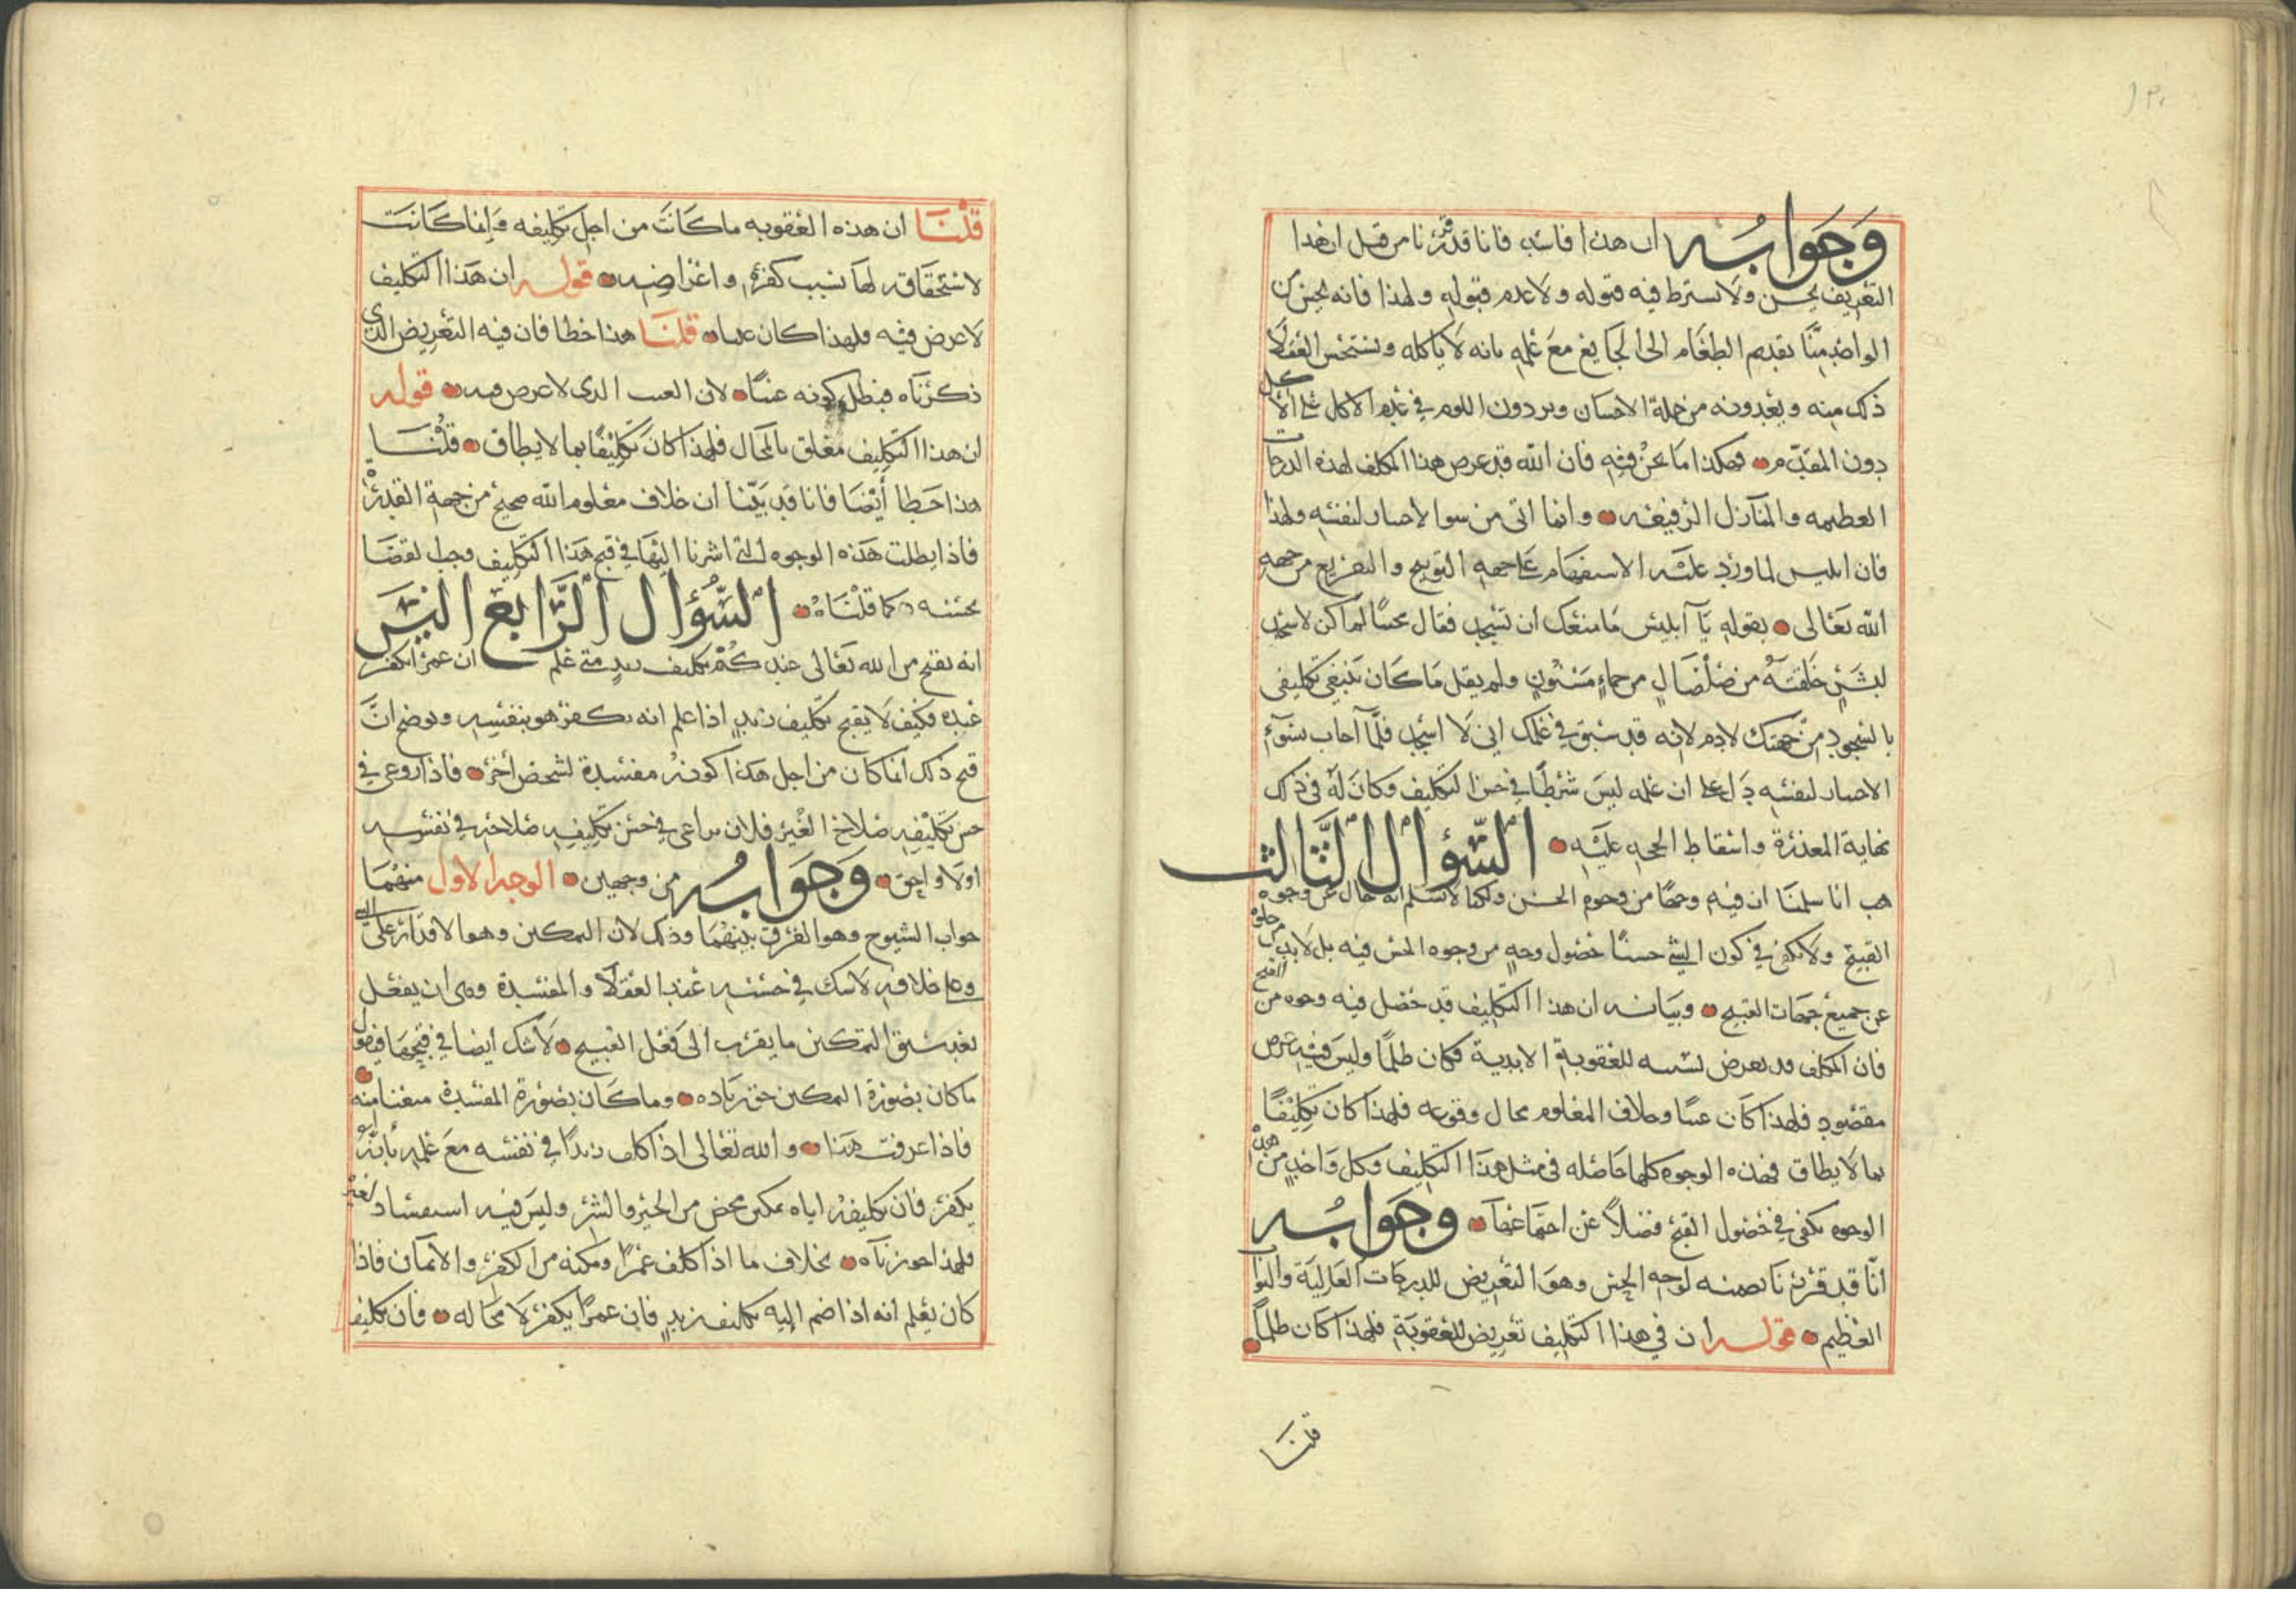 وَجَوابُه ان هذا فاسد فانا قد قررنا من قبل ان هذا
التعريض يحسن ولا نسترط فيه قبوله ولا عدم قبوله ولهذا فانه يحسن من
الواحد منّا تقديم الطعام الى الجايع مع علمه بانه لا ياكله ويستحسن العقلا
ذلك منه ويعدونه من جملة الاحسان ويردون اللوم في عدم الاكل على الآكل
دون المقدّم فهكذا ما نحن فيه فان الله قد عرض هذا المكلف لهذه الدرجات
العظيمه والمنازل الرفيعه وانما اتى من سوا لاحسار لنفسه ولهذا
فان ابليس لما ورد عليه الاستفهام على جهه التوبيخ والتقريع من جهه
الله تعالى بقوله يَآ ابليس مَا منعك ان تسجد فقال مجيبًا لم اكن لاسجد
لبشرٍ خلقتَهُ من صَلْصَالٍ من حماءٍ مَسْنُونٍ ولم يقل مَا كان ينبغي تكليفى
بالسجود من جهتك لادم لانه قد سبق في علمك اني لَا اسجد فلمّا اجاب بسوٓء
الاحسار لنفسه دَل على ان علمه ليس شرطًا في حسن التكليف وكان لهُ فى ذلك
نهاية المعذرة واسقاط الحجه عليه السّؤال الثّالث
هب انا سلمنا ان فيه وجهًا من وجوه الحسن ولكنا لا نسلم انه خال عن وجوه
القبيح ولا يكفى في كون الشي حسنًا حصول وجهٍ من وجوه الحسن فيه بل لا بد من خلوه
عن جميع جهات القبح وبيانه ان هذا التكليف قد حصل فيه وجوه من القبح
فان المكلف قد تعرض بسببه للعقوبةِ الابدية فكان ظلمًا وليس فيه غرض
مقصود فلهذا كان عبثًا وخلاف المعلوم محال وقوعه فلهذا كان تكليفًا
بما لَا يطاق فهذه الوجوه كلها حَاصله فى مثل هذا التكليف وكل وَاحدٍ من هذه
الوجوه يكفى في حصول القبح فضلًا عن اجتماعها وجَوابُه
انّا قد قررنا تضمنه لوجه الحسن وهوَ التعريض للدرجات العَالية والثواب
العظيم قوله ان في هذا التكليف تعريض للعقوبَة فلهذا كان ظلمًا
قلنا
قلنَا ان هذه العقوبه ما كانَت من اجل تكليفه وَانما كَانت
لاستحقاقه لها بسبب كفره واعراضه قوله ان هَذا التكليف
لا عرض فيه فلهذا كان عبثا قلنَا هذا خطا فان فيه التعريض الذي
ذكرناه فبطل كونه عبثًا لان العبث الذى لا عرض فيه قوله
ان هذا التكليف مُعلق بالمحال فلهذا كان تكليفًا بما لا يطاق قلنَا
هذا خَطا أيضًا فانا قد بيّنّا ان خلاف معلوم الله صحيح من جهة القدرة
فاذا بطلت هَذه الوجوه التي اشرنا اليها في قبح هذا التكليف وجب القضا
بحسنه كما قلنَاه السّؤال الرّابع اليسَ
انه يقبح من الله تعَالى عندكُم تكليف زيدٍ متى علم ان عمرًا يكفر
عنده فكيف لَا يقبح تكليف زيدٍ اذا علم انه يكفر هو بنفسه ويوضح انّ
قبح ذلك انما كان من اجل هذا كونه مفسدة لشخص أخر فاذا روعي في
حسن تكليفه صلاح الغير فلان يراعى في حسن تكليفه صلاحه في نفسه
اولا واحق وَجَوَابُه من وجهين الوجه الاول منهما
جواب الشيوخ وهو الفرق بينهُمَا وذلك لان التمكين وهو الاقدار على الشي
وعلى خلافه لا شك في حسنه عند العقلَا والمفسدة وهى ان يفعل
بعد سبق التمكين ما يقرب الى فعل القبيح ولَا شك أيضا في قبحها فيقول
ما كان بصورة التمكين حق زياده وما كان بصورة المفسدة منعنا منه
فاذا عرفت هذا والله تعَالى اذا كلف زيدًا في نفسه معَ علمه بأنهُ
يكفر فان تكليفهُ اياه تمكين محض من الخير والشر وليس فيه استفساد لغيره
فلهذا جوزناه بخلاف ما اذا كلف عمرًا ومكنه من الكفر والايمان فاذا
كان يعلم انه اذا ضم اليه تكليف زيدٍ فان عمرًا يكفر لَا محَاله فان تكليف